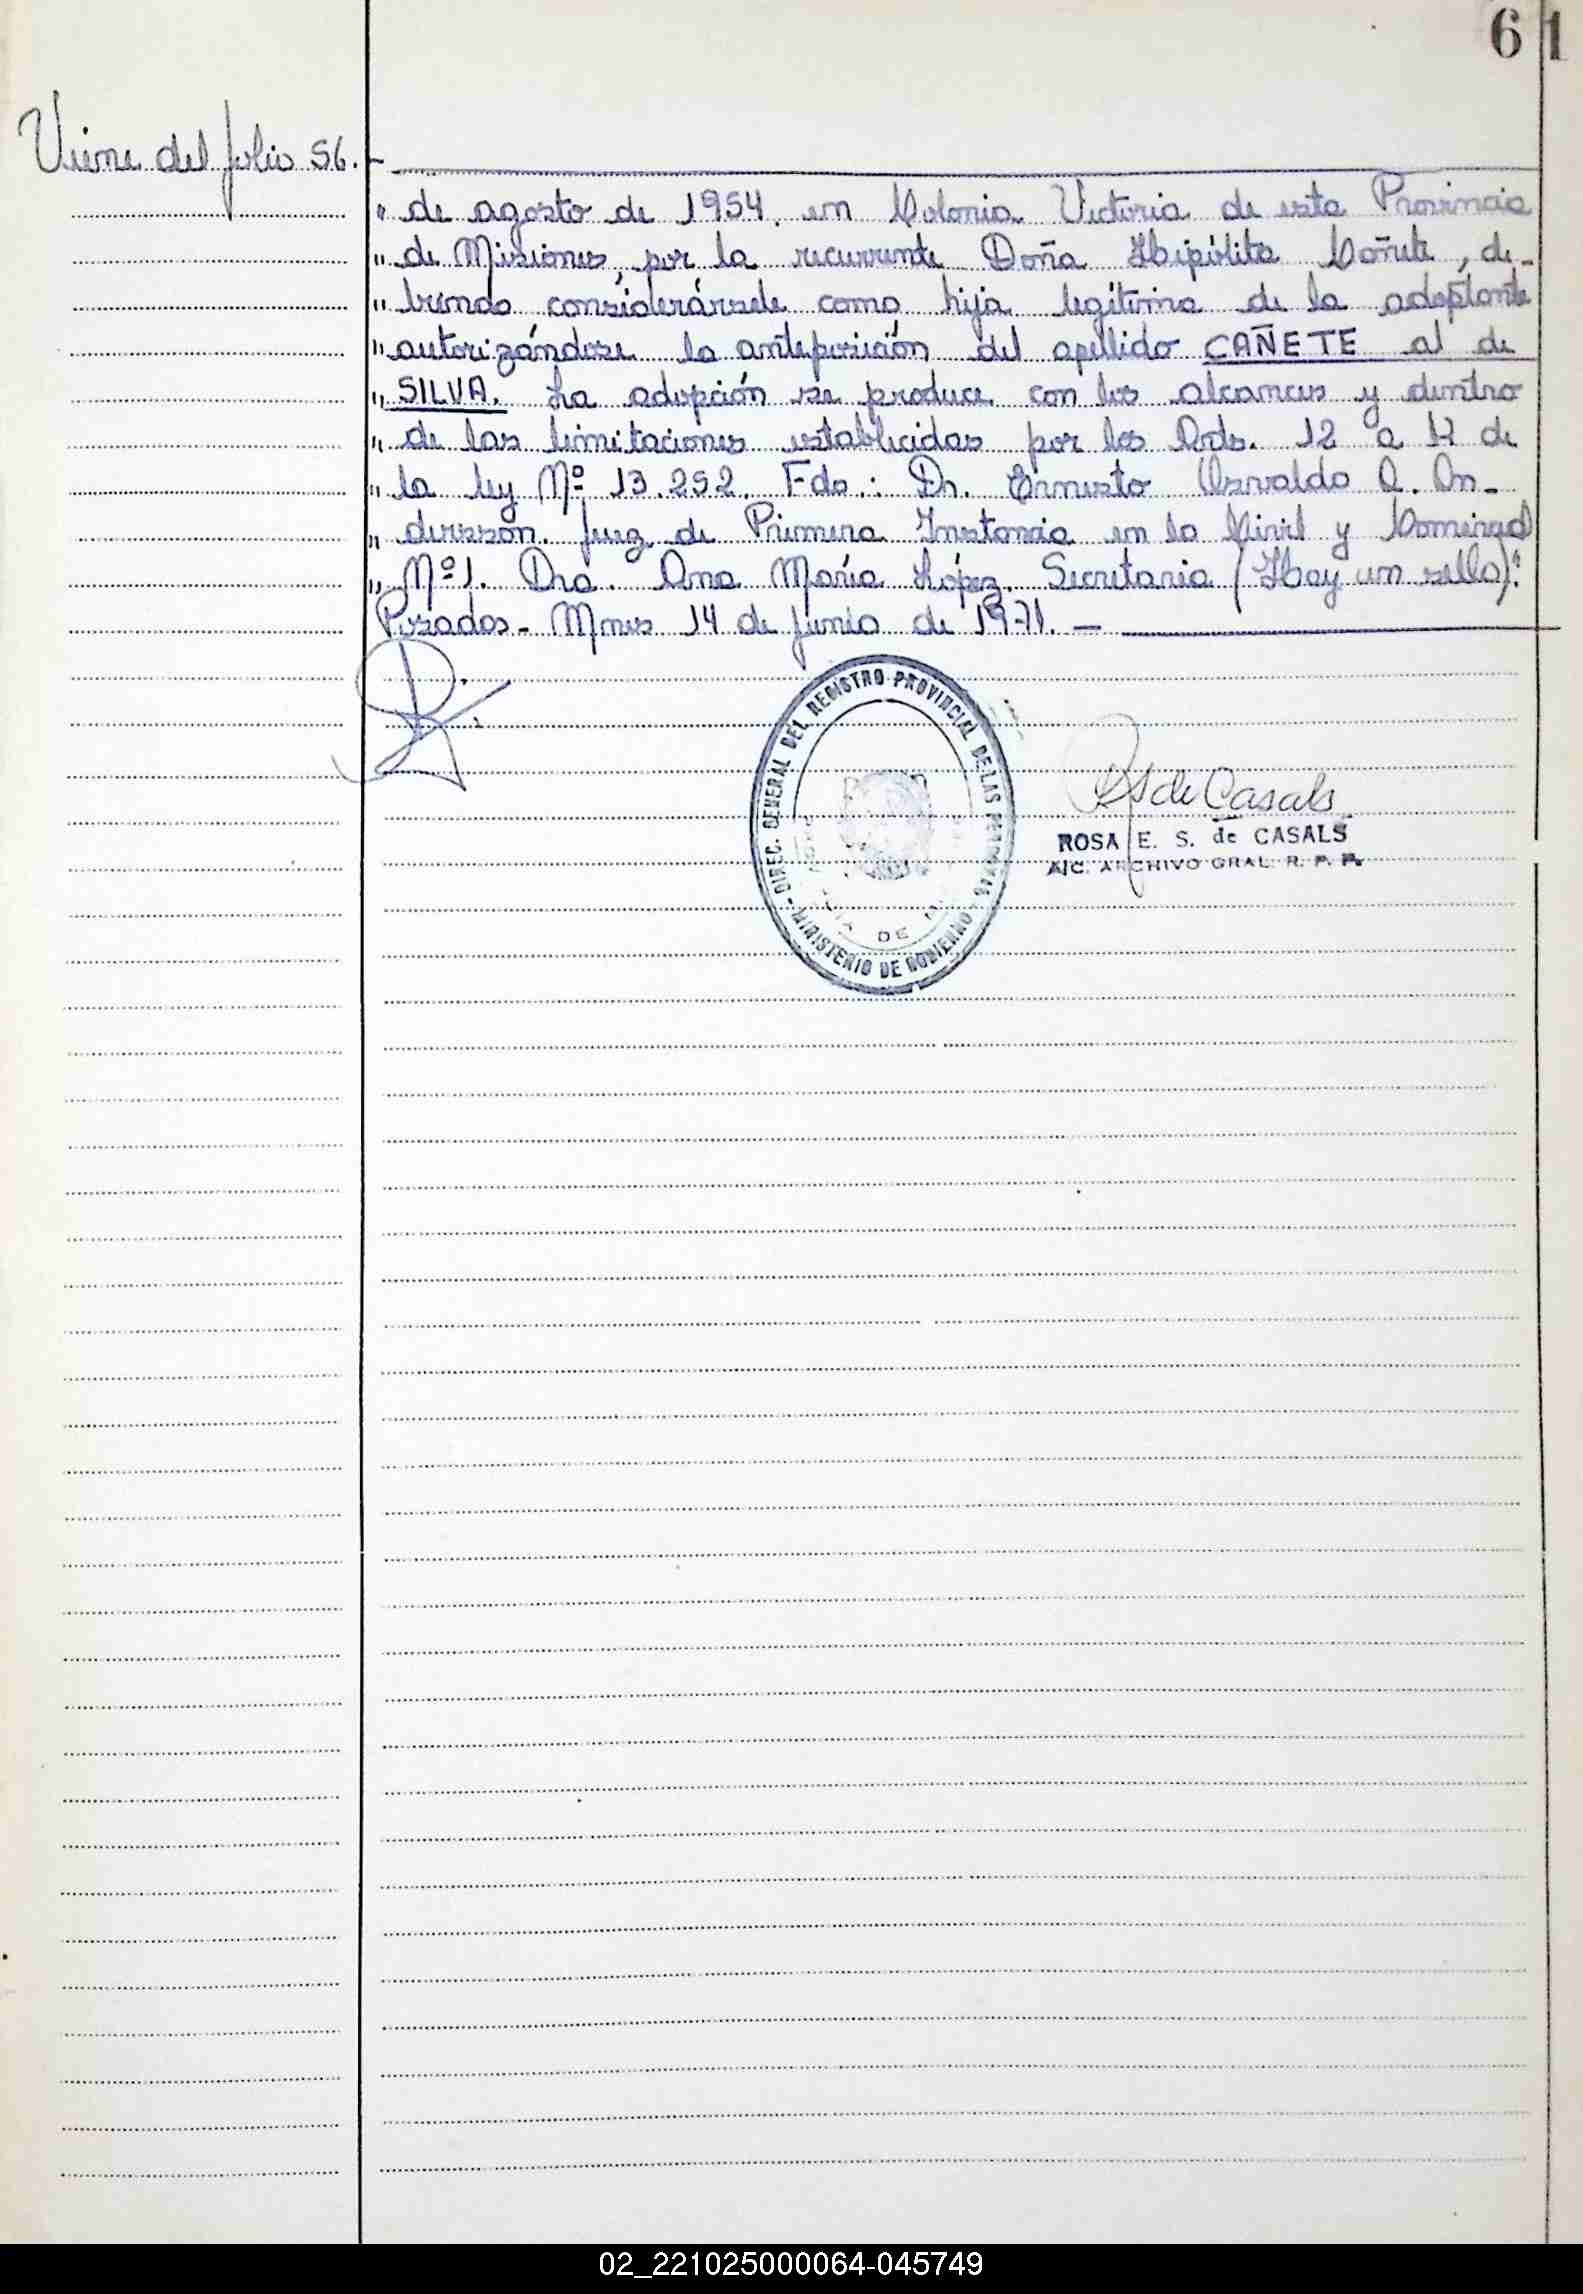 61
Viene del folio 56.-
" de agosto de 1954, en Colonia Victoria de esta Provincia
" de Misiones, por la recurrente Doña Hipólita Cañete, de-
" biendo considerársele como hija legítima de la adoptante
" autorizándose la anteposición del apellido CAÑETE al de
" SILVA. La adopción se produce con los alcances y dentro
" de las limitaciones establecidas por los Arts. 12 a de
" la ley Nº 13.252. Fdo.: Dr. Ernesto Osvaldo A. An-
" dersson. Juez de Primera Instancia en lo Civil y Comercial
" Nº 1. Dra. Ana María López. Secretaria (Hay un sello)."
Posadas - Mnes 14 de junio de 1971. —
DIREC. GENERAL DEL REGISTRO PROVINCIAL DE LAS PERSONAS - MINISTERIO DE GOBIERNO -
DE
RS de Casals
ROSA E. S. de CASALS
A/C. ARCHIVO GRAL. R. P. P.
02_221025000064-045749